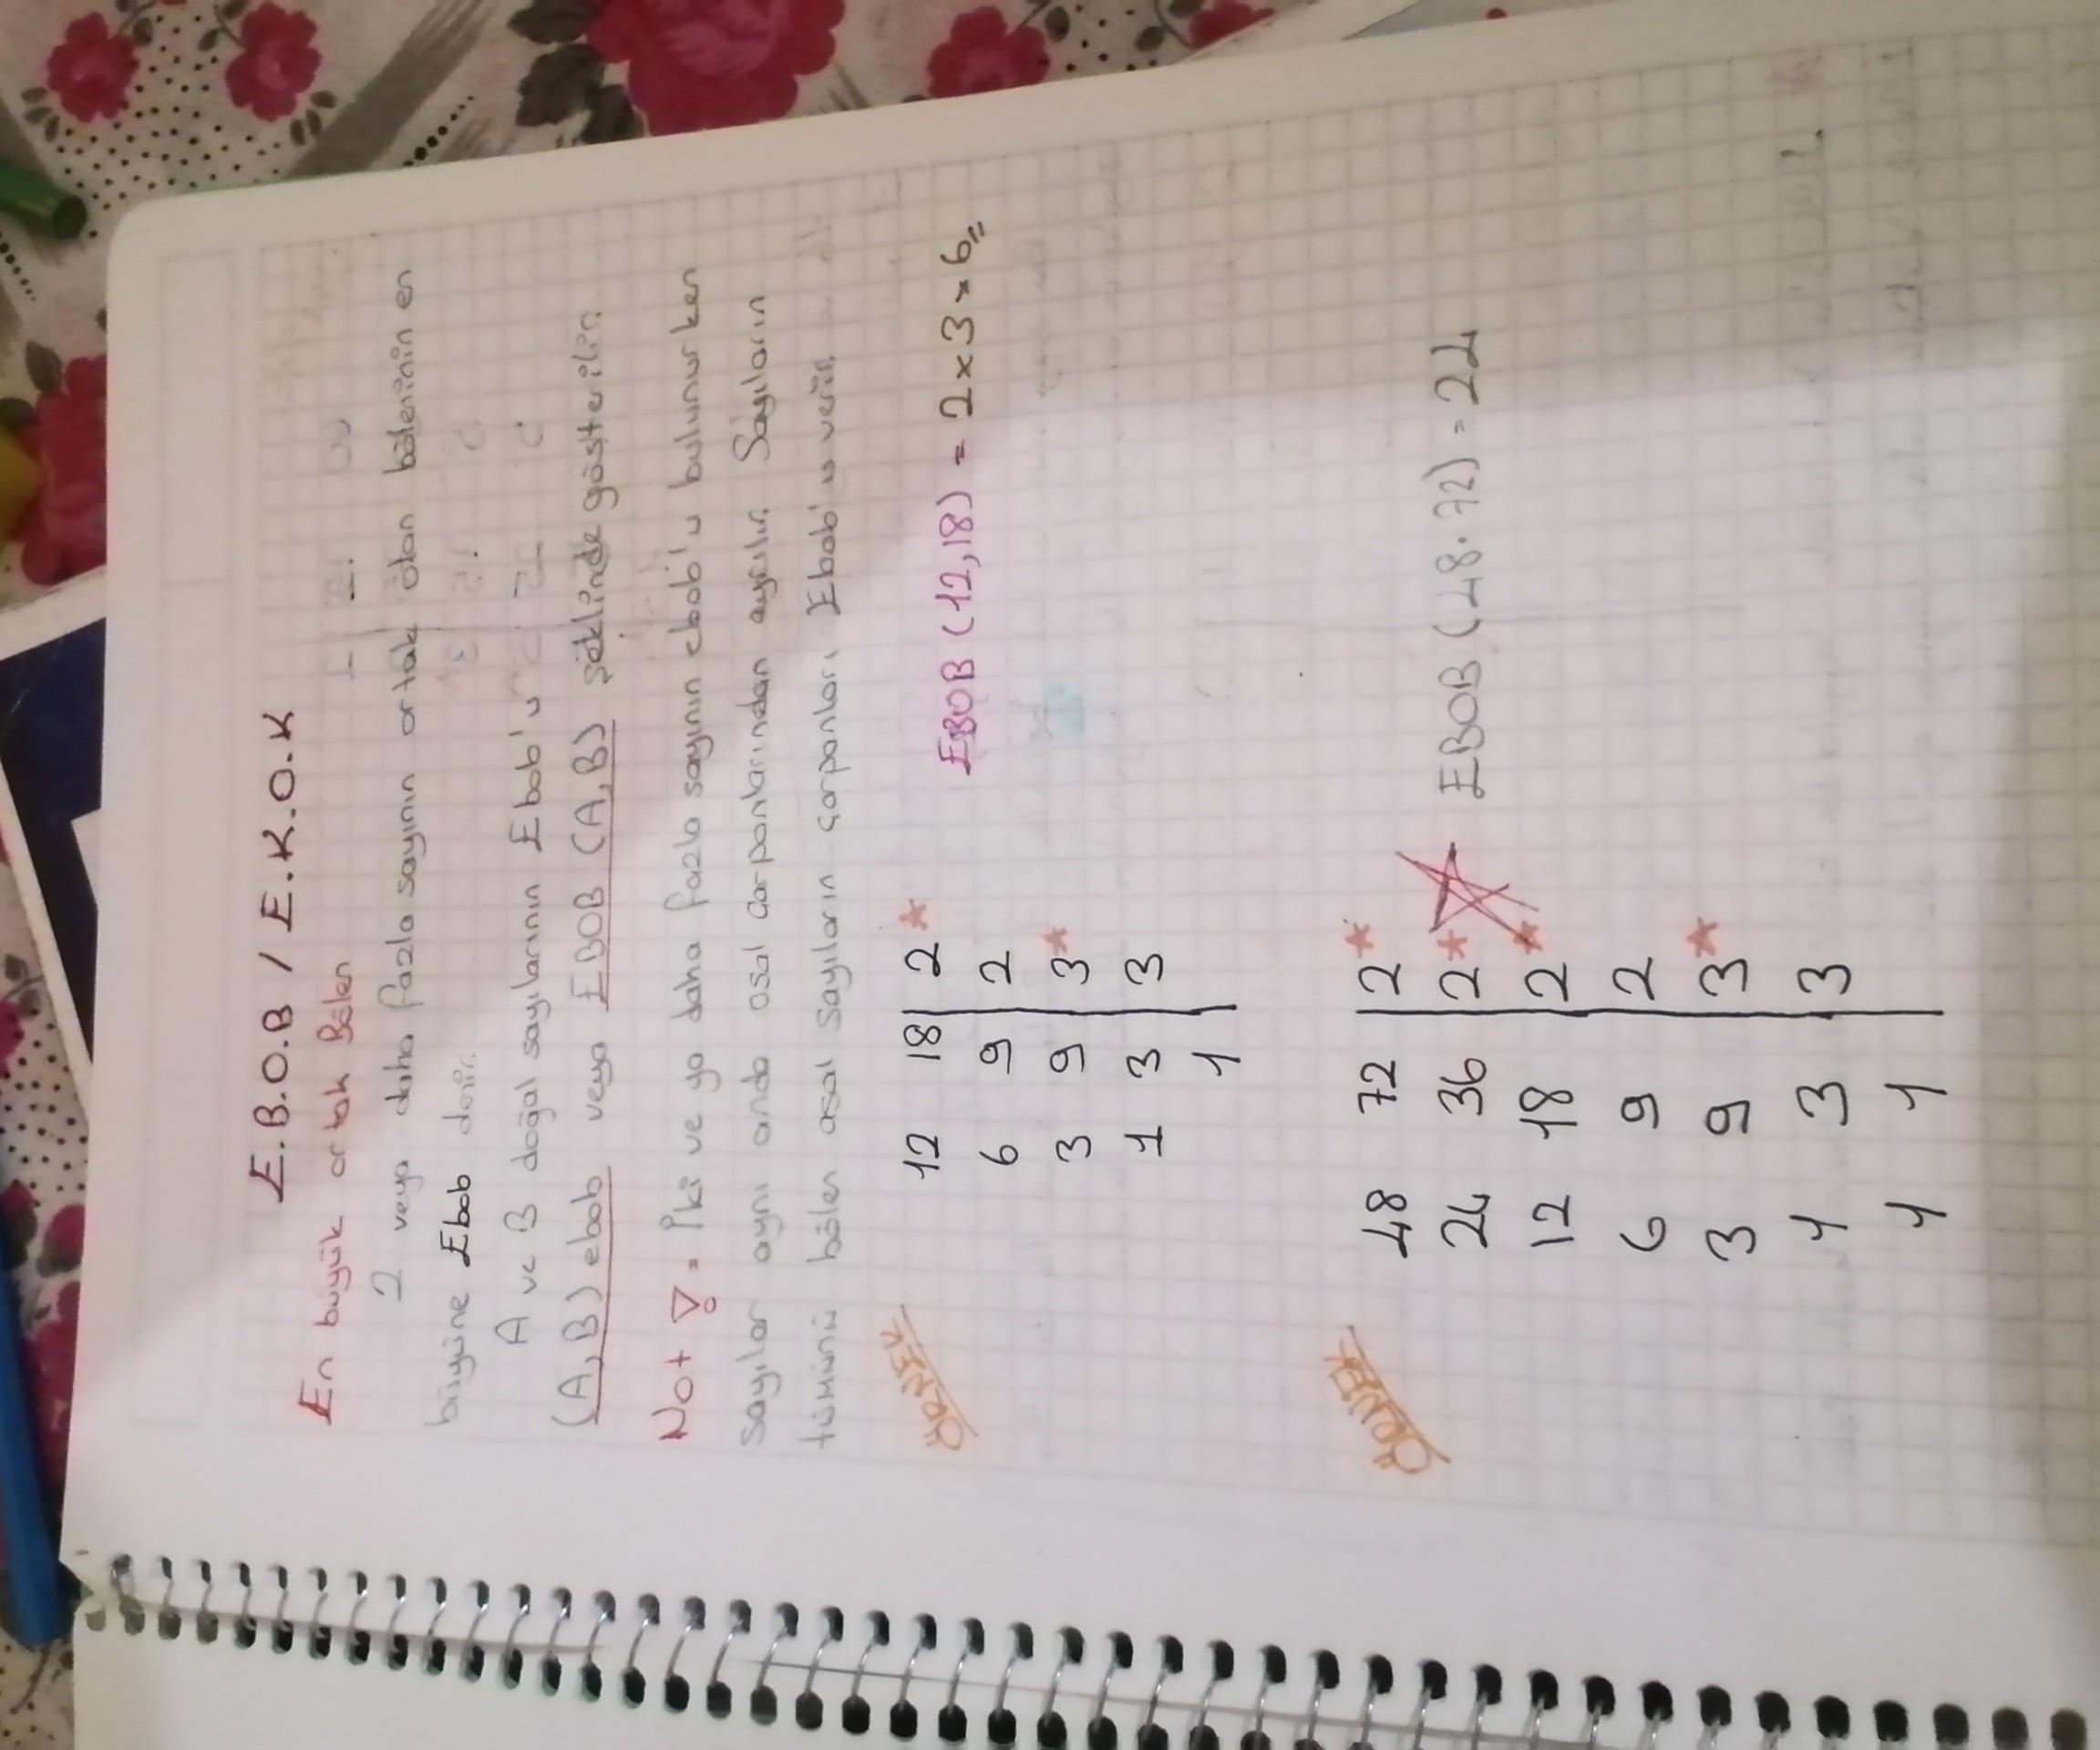 E.B.O.B / E.K.O.K
En büyük ortak Bölen
2 veya daha fazla sayının ortak olan böleninin en
büyüne Ebob denir.
A ve B doğal sayılarının Ebob'u
(A,B) ebob veya EBOB (A,B) şeklinde gösterilir.
Not = İki ve ya daha fazla sayının ebob'u bulunurken
Sayılar aynı anda asal çarpanlarından ayrılır. Sayıların
tümünü bölen asal sayıların çarpanları Ebob'u verir.
ÖRNEK
12 18 2 *
6 9 2
3 9 3 *
1 3 3
1
EBOB (12,18) = 2x3x6
ÖRNEK
48 72 2 *
24 36 2 *
12 18 2 *
6 9 2
3 9 3 *
1 3 3
1 1
EBOB (48.72) = 24